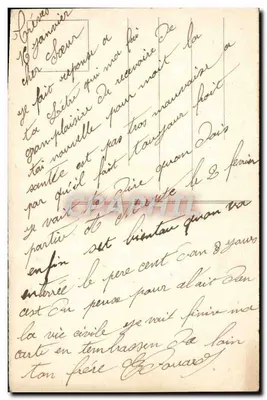 janvier
cher Sœur
je fait reponse a
ta lettre qui ma fai
gran plaisire de recevoire de
tai nouvelle pour moit la
santee est pas tros mauvaise a
par qu'il fait toujour froit
je vait te dire quon dois
partire de le 2 fevrie
enfin set bientau quon va
le pere cent dan 8 jours
est on pense pour alait dan
la vie civile je vait finire ma
carte en tembrassen de loin
ton frère Edouard